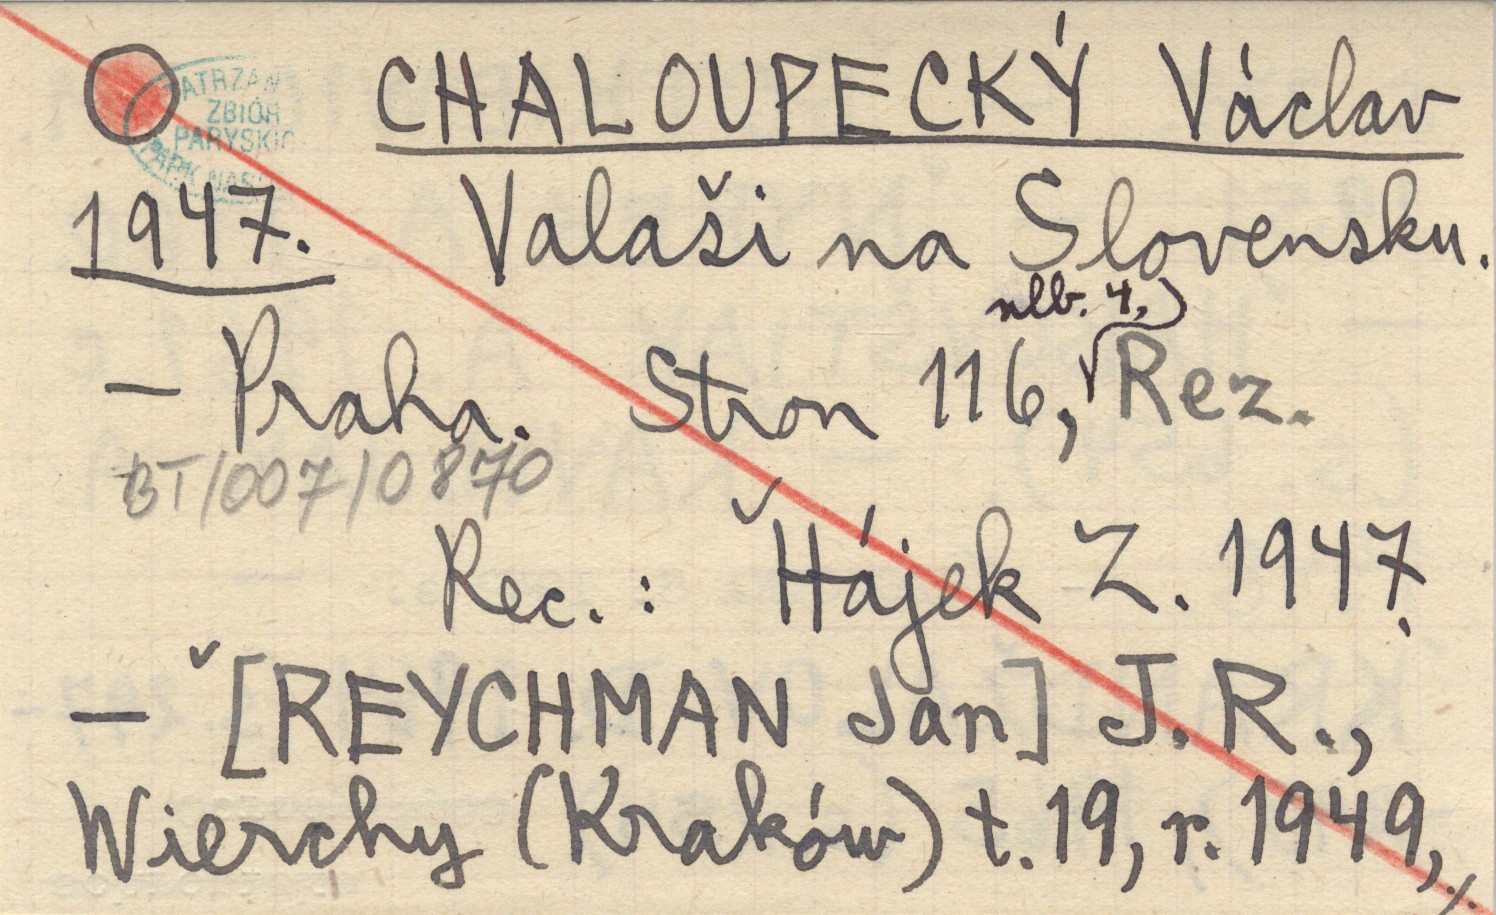 CHALOUPECKÝ Václav
ATRZAN
ZBIÓR
PARYSKIC
1947. Valaši na Slovensku.
nlb. 4,
– Praha. Stron 116, Rez.
BT/007/0870
Rec.: Hájek Z. 1947.
– [REYCHMAN Jan] J. R.,
Wierchy (Kraków) t. 19, r. 1949,
./.